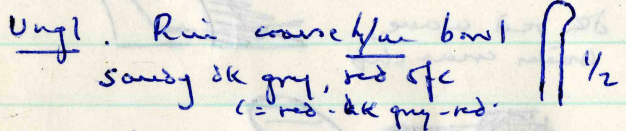 Ungl. Rim coarse h/m bowl
sandy dk grey, red sfc 1/2
(= red-dk grey-red.